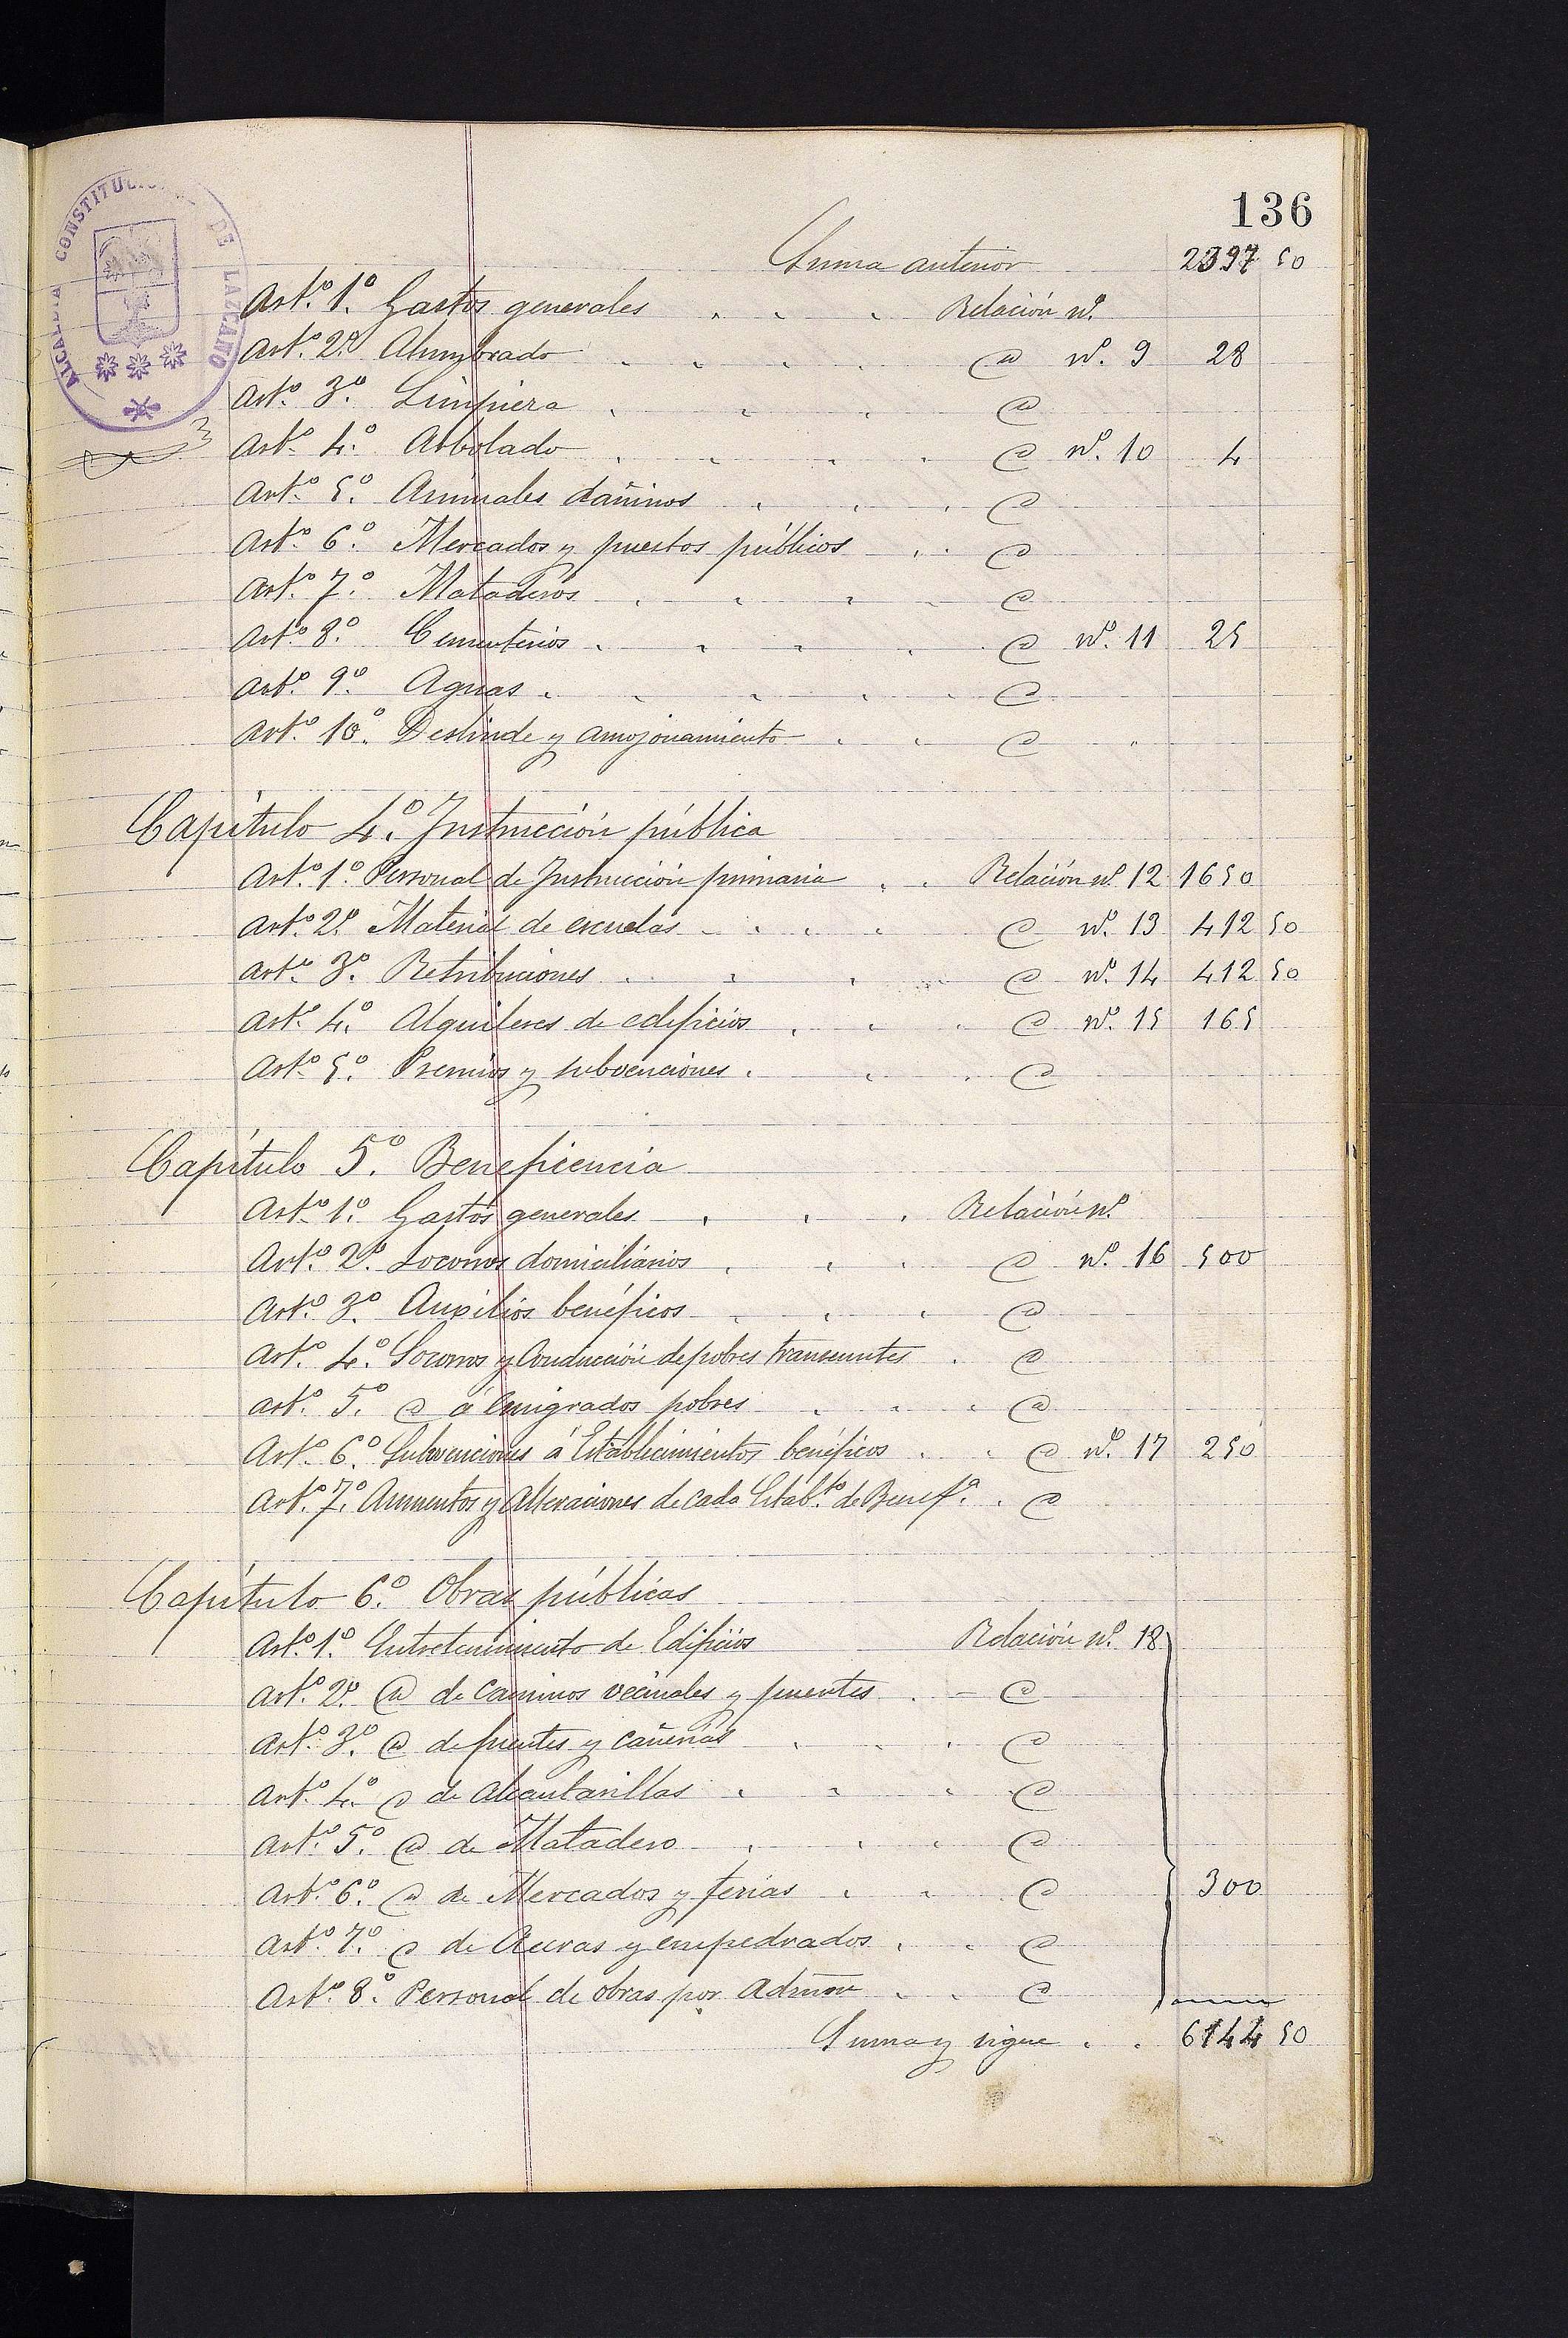 136
ALCALDIA CONSTITUCIONAL DE LAZCANO
Suma anterior 2397 50
Artº. 1º. Gastos generales . . . Relación nº.
Artº. 2º. Alumbrado . . . . @ nº. 9 28
Artº. 3º. Limpieza . . . @
Artº. 4º. Arbolado . . . . @ nº. 10 4
Artº. 5º. Animales dañinos . . . @
Artº. 6º. Mercados y puestos públicos . . @
Artº. 7º. Mataderos . . . . @
Artº. 8º. Cementerios . . . . @ nº. 11 25
Artº. 9º. Aguas . . . . . @
Artº. 10º. Deslinde y amojonamiento . . @ "
Capítulo 4º. Instrucción pública
Artº. 1º. Personal de Instrucción primaria . . Relación nº. 12 1650
Artº. 2º. Material de escuelas . . . . @ nº. 13 412 50
Artº. 3º. Retribuciones . . . @ nº. 14 412 50
Artº. 4º. Alquileres de edificios . . . @ nº. 15 165
Artº. 5º. Premios y subvenciones . . . @
Capítulo 5º. Beneficencia
Artº. 1º. Gastos generales . . . Relación nº.
Artº. 2º. Socorros domiciliarios . . . @ nº. 16 500
Artº. 3º. Auxilios benéficos . . . @
Artº. 4º. Socorros y Conducción de pobres transeuntes . @
Artº. 5º. @ á emigrados pobres . . . @
Artº. 6º. Subvenciones á Establecimientos benéficos . . @ nº. 17 250
Artº. 7º. Aumentos y Alteraciones de cada Estab.to de Benefª. . @
Capítulo 6º. Obras públicas
Artº. 1º. Entretenimiento de Edificios Relación nº. 18
Artº. 2º. @ de caminos vecinales y puentes . @
Artº. 3º. @ de fuentes y cañerias . . . @
Artº. 4º. @ de Alcantarillas . . . @
Artº. 5º. @ de Matadero . . . @
Artº. 6º. @ de Mercados y ferias . . @ 300
Artº. 7º. @ de Aceras y empedrados . . @
Artº. 8º. Personal de obras por Admon . . @
Suma y sigue . . 6144 50